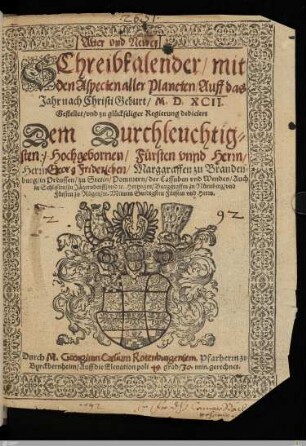 Alter vnd Newer
SChreibkalender / mit
den Aspecten aller Planeten / Auff das
Jahr nach Christi Geburt / M. D. XCII.
Gestellet / vnd zu glückseliger Regierung dediciert
Dem Durchleuchtig-
sten / Hochgebornen / Fürsten vnnd Herrn /
Herrn Georg Friderichen / Marggraffen zu Branden-
burg / in Preussen / zu Stetin / Pommern / der Cassuben vnd Wenden / Auch
in Schlesien / zu Jägerndorff
Burggraffen zu Nürnberg / vnd
Fürsten zu Rügen
92
Durch M. Georgium Cæsium Rotenburgensem, Pfarherrn zu
Burckbernheim / Auff die Eleuation poli 49. grad / 30. min. gerechnet.